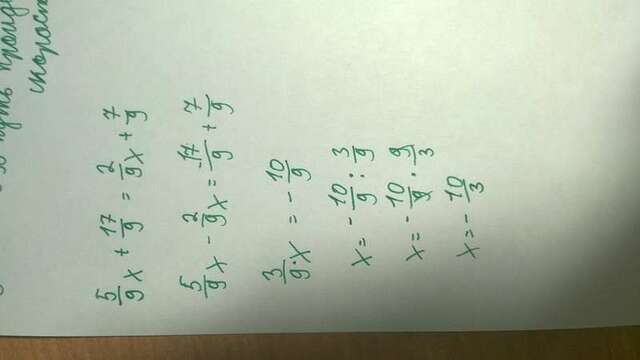 путь
скорост
5/9 x + 17/9 = 2/9 x + 7/9
5/9 x - 2/9 x = -17/9 + 7/9
3/9 · x = - 10/9
x = - 10/9 : 3/9
x = - 10/9 · 9/3
x = - 10/3